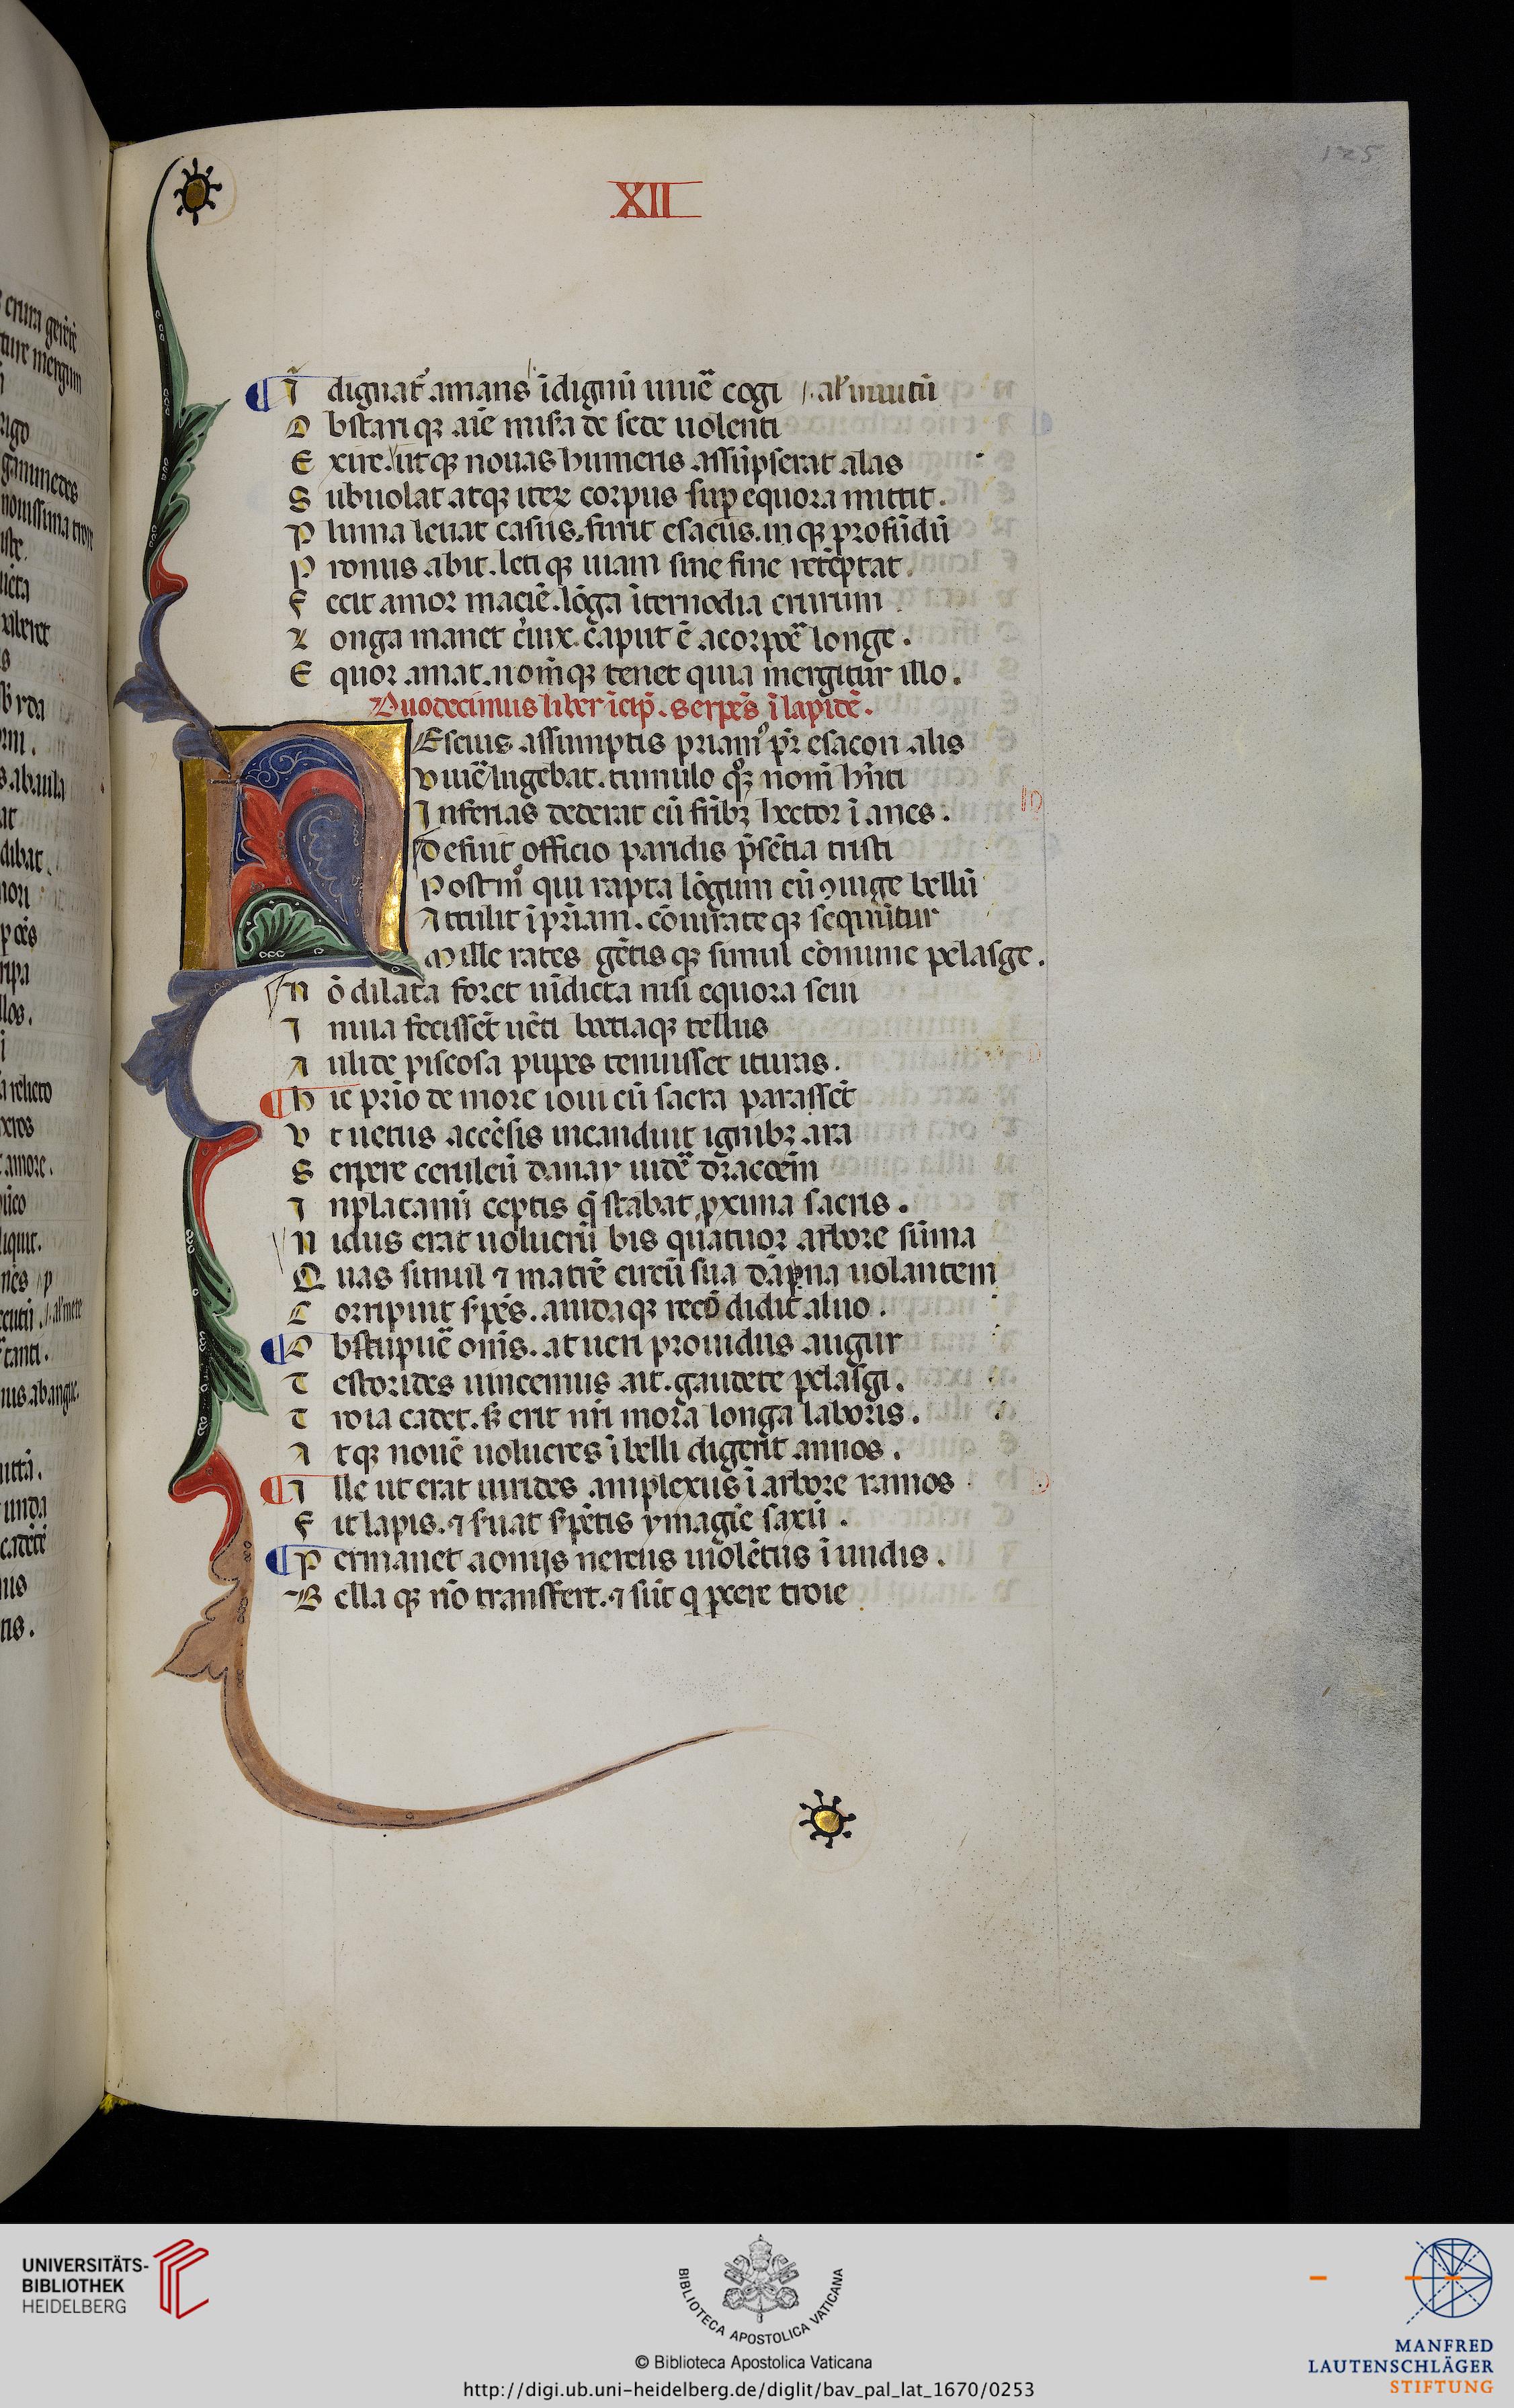 125
XII
I dignat᷑ amans ĩdignũ uiuẽ cogi / al' inuitũ
O bstari qꝫ aĩe misa de sede uolenti
E xire. utqꝫ nouas humeris assũpserat alas
S ubuolat atqꝫ iteꝝ corpus sup equora mittit.
P luma leuat casus. furit esacus. inqꝫ profũdũ
P ronus abit. leti qꝫ uiam sine fine retẽptat.
F ecit amor maciẽ. lõga ĩternodia crurum
L onga manet crux. caput ẽ a corpoẽ longe.
E quor amat. nomqꝫ tenet quia mergitur illo.
Duodecimus liber ĩcip̃. Serpẽs ĩ lapidẽ.
N Escius assumptis priamꝰ pr̃ esacon alis
V iuẽ lugebat. tumulo qꝫ nom̃ hñti
I nferias dederat cũ fr̃ibꝫ hector ĩanes.
D efuit officio paridis p̃sẽtia tristi
P ostmꝰ qui rapta lõgum cũ ꝯiuge bellũ
A ttulit ĩ pr̃iam. cõiurate qꝫ sequũtur
M ille rates gẽtis qꝫ simul comune pelasge.
N õ dilata foret uĩdicta nisi equora seui
I nuia fecissẽt uẽti boetiaqꝫ tellus
A ulide piscosa pupes tenuisset ituras.
H ic p̃rio de more ioui cũ sacra parassẽt
V t uetus accẽsis incanduit ignibꝫ ara
S erpere ceruleũ danay uidẽ draccẽm
I nplatanũ ceptis q̃ stabat ꝓxima sacris.
N idus erat uolucrũ bis quatuor arbore sũma
Q uas simul ⁊ matrẽ circũ sua dãpna uolantem
C orripuit s̃pẽs. auidaqꝫ recõdidit aluo.
O bstupuẽ om̃s. at ueri prouidus augur
T estorides uincemus ait. gaudete pelasgi.
T roia cadet. sꝫ erit nr̃i mora longa laboris.
A tqꝫ nouẽ uolucres ĩ belli digerit annos.
I lle ut erat uirides amplexus ĩ arbore ramos
F it lapis. ⁊ s̃uat s̃pẽtis ymagiẽ saxũ.
P ermanet aonijs nereus uiolẽtus ĩ undis.
B ella qꝫ nõ transfert. ⁊ sũt q pcere troie
UNIVERSITÄTS-
BIBLIOTHEK
HEIDELBERG
BIBLIOTECA APOSTOLICA VATICANA
© Biblioteca Apostolica Vaticana
http://digi.ub.uni-heidelberg.de/diglit/bav_pal_lat_1670/0253
MANFRED
LAUTENSCHLÄGER
STIFTUNG